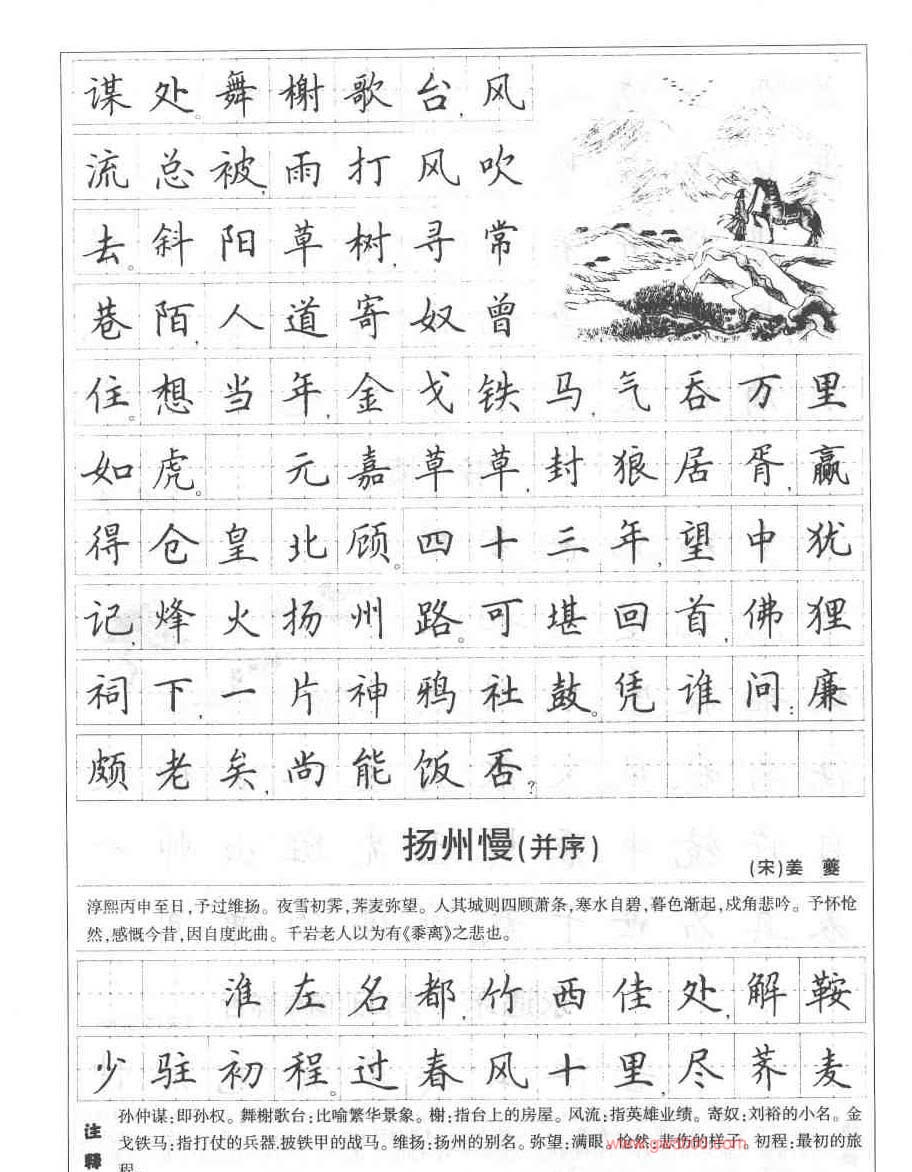 谋处。舞榭歌台,风
流总被,雨打风吹
去。斜阳草树,寻常
巷陌,人道寄奴曾
住。想当年,金戈铁马,气吞万里
如虎。 元嘉草草,封狼居胥,赢
得仓皇北顾。四十三年,望中犹
记,烽火扬州路。可堪回首,佛狸
祠下,一片神鸦社鼓。凭谁问:廉
颇老矣,尚能饭否?
扬州慢(并序)
(宋)姜 夔
淳熙丙申至日,予过维扬。夜雪初霁,荠麦弥望。人其城则四顾萧条,寒水自碧,暮色渐起,戍角悲吟。予怀怆
然,感慨今昔,因自度此曲。千岩老人以为有《黍离》之悲也。
淮左名都,竹西佳处,解鞍
少驻初程。过春风十里,尽荠麦
注释
孙仲谋:即孙权。舞榭歌台:比喻繁华景象。榭:指台上的房屋。风流:指英雄业绩。寄奴:刘裕的小名。金
戈铁马:指打仗的兵器,披铁甲的战马。维扬:扬州的别名。弥望:满眼。怆然:悲伤的样子。初程:最初的旅
程。